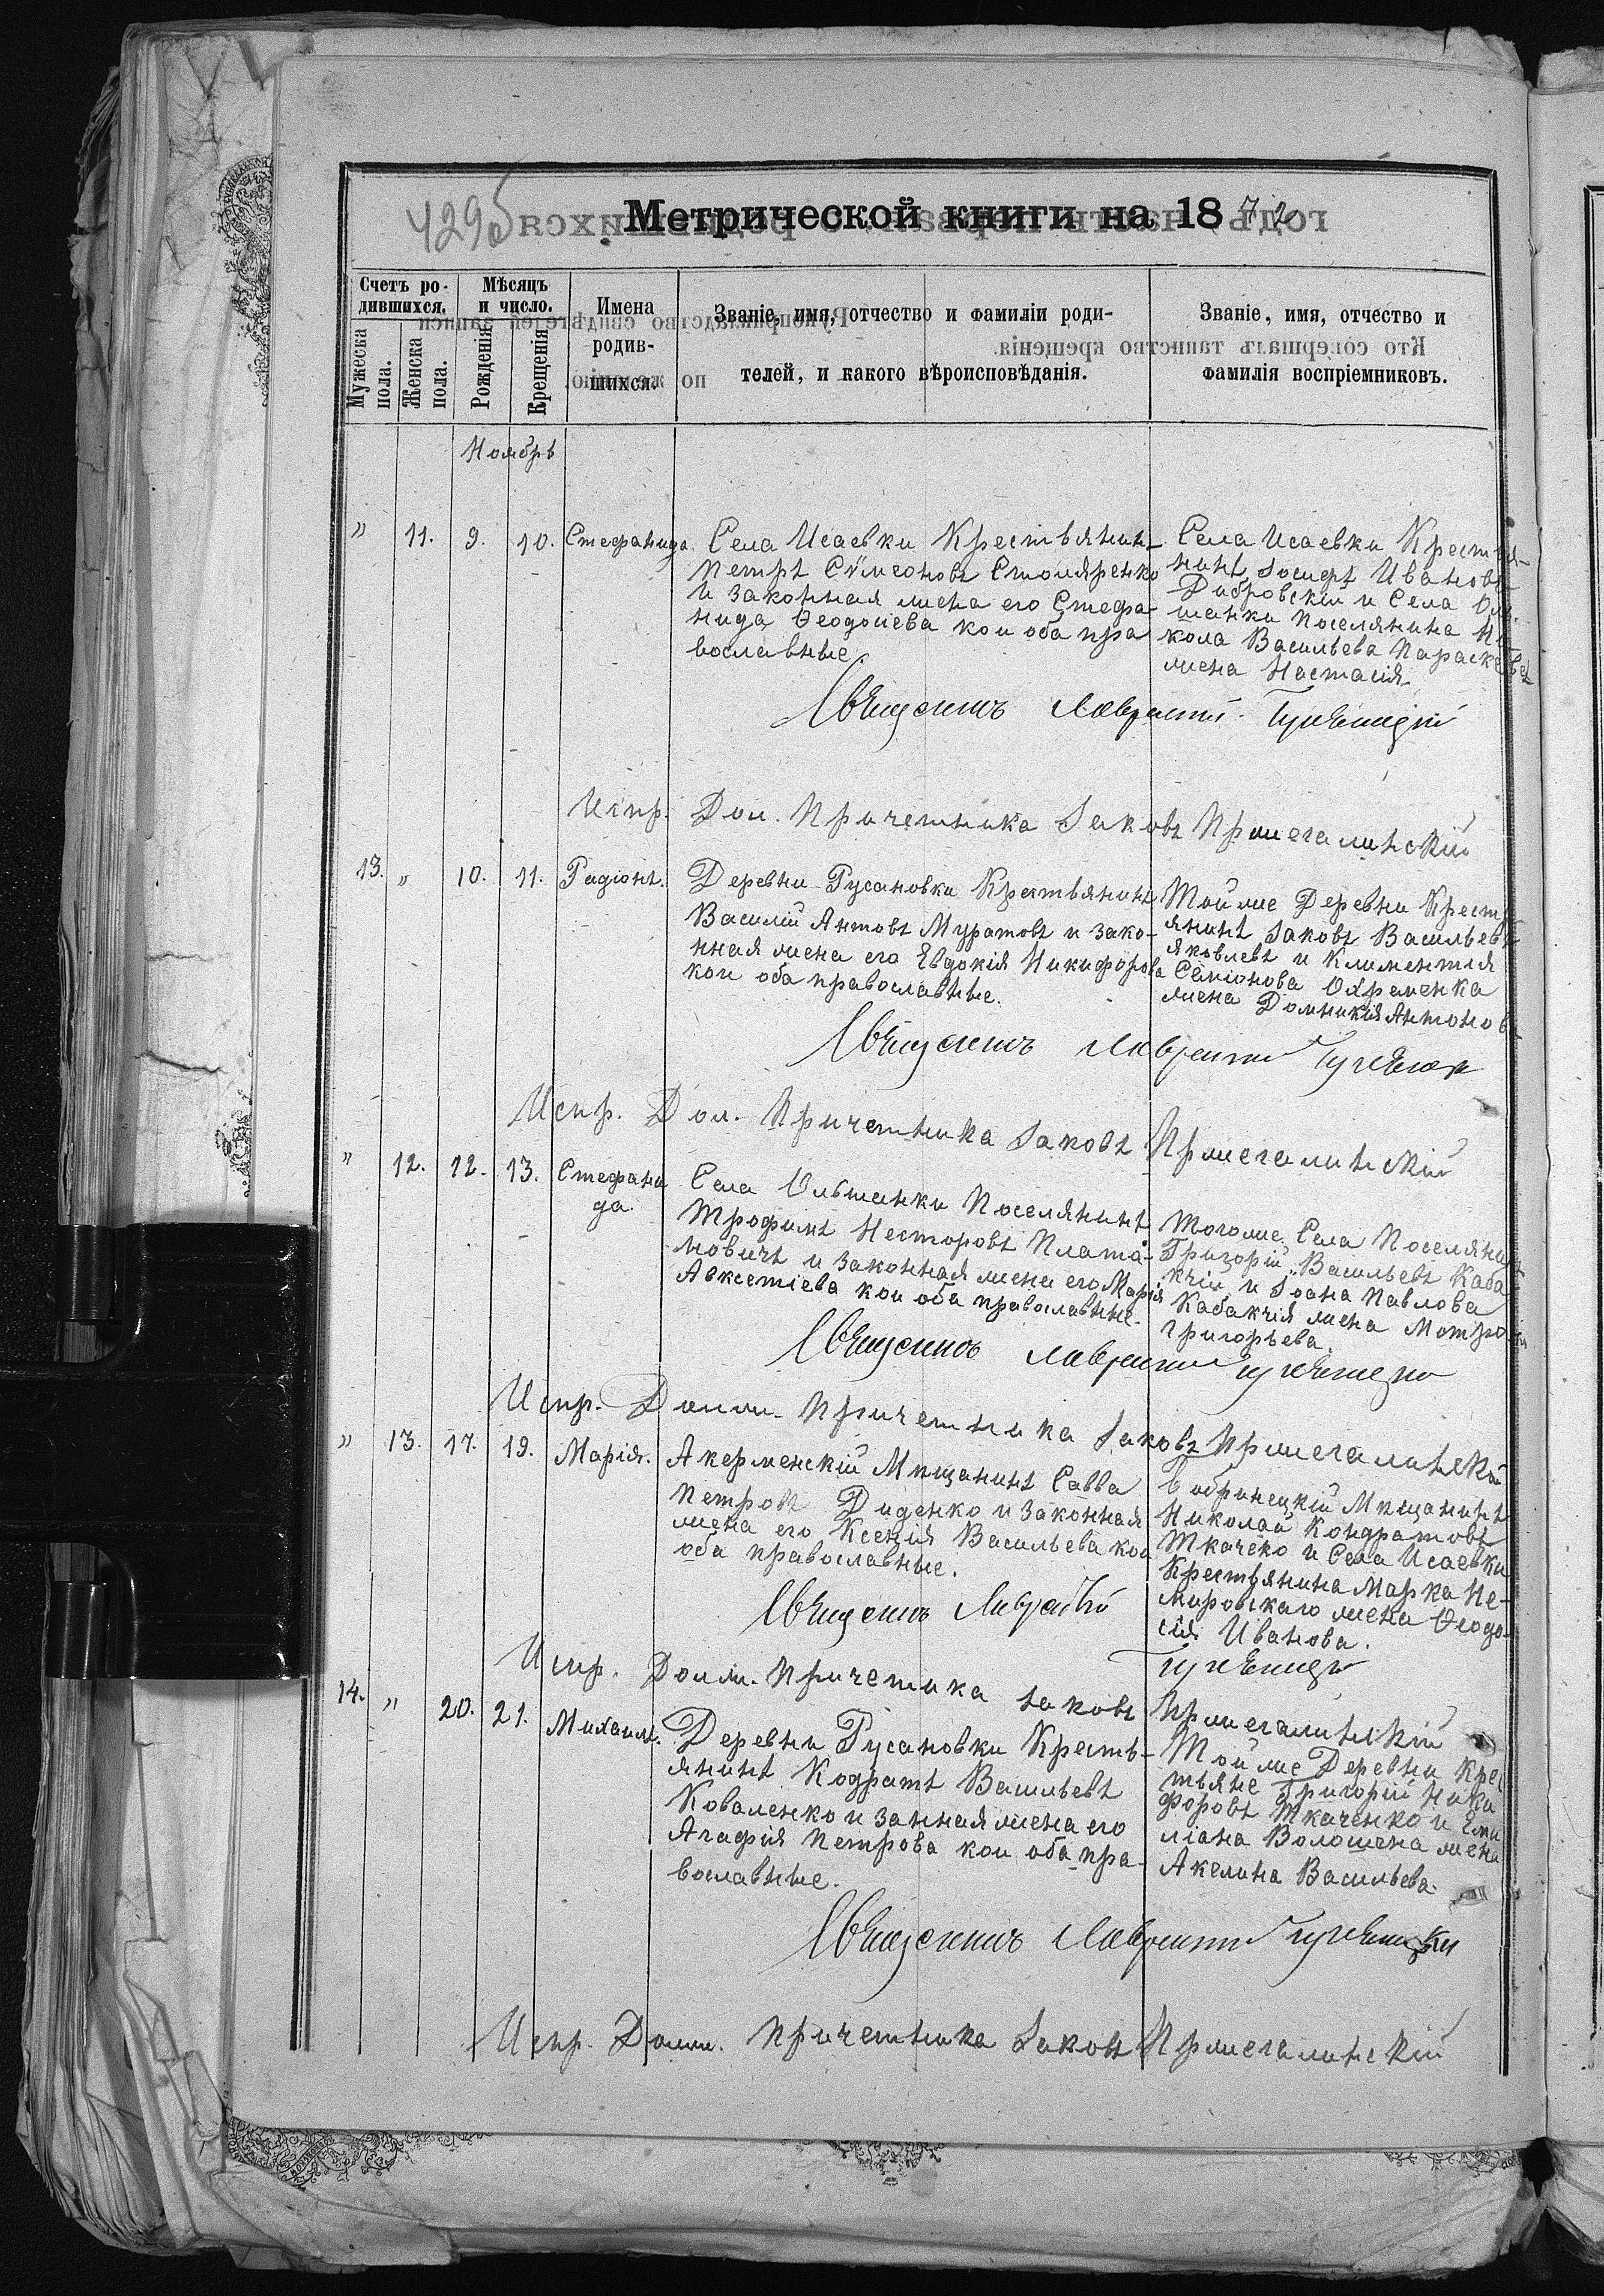 429об
Метрической книги на 1872
Счетъ ро-
дившихся.
Мѣсяцъ
и число.
Мужеска
пола.
Женска
пола.
Рожденія
Крещенія
Имена
родив-
шихся.
Званіе, имя, отчество и фамиліи роди-
телей, и какого вѣроисповѣданія.
Званіе, имя, отчество и
фамилія воспріемниковъ.
Ноябрь
" 11. 9. 10. Стефанида
Села Исаевки Крестьянин-
Петръ Симеоновъ Столяренко
и законная жена его Стефа-
нида Ѳеодосіева кои оба пра
вославные.
Села Исаевки Крестья-
нинъ Іосифъ Ивановъ
Дибровскій и Села Оль-
шанки Поселянина Ни
кола Васильева
жена Настасія
Священникъ Лаврентій
Испр. Дол. Причетника Іаковъ
13. " 10. 11. Радіонъ.
Деревни Русановки Крестьянинъ
Василій Антовъ Муратовъ и зако-
нная жена его Евдокія Никифорова
кои оба православные.
Той же Деревни Крест
янинъ Іаковъ Васильевъ
Яковлевъ и Климентія
Семіонова Охременка
жена Домникія Антонов
Священникъ Лаврентій
Испр. Дол. Причетника Іаковъ
" 12. 12. 13. Стефани
да.
Села Ольшанки Поселянинъ
Трофимъ Несторовъ Плато-
новичъ и законная жена его Марія
Авксетіева кои оба православные.
Тогоже Села Поселянинъ
Григорій Васильевъ Каба
кчій и Іоана Павлова
Кабакчія жена Матро
Григорьева.
Священникъ Лаврентій
Испр. Долж. Причетника Іаковъ
" 13. 17. 19. Марія.
Акерменскій Мещанинъ Савва
Петровъ Диденко и законная
жена его Ксенія Васильева кои
оба православные.
Бобринецкій Мещанинъ
Николай Кондратовъ
Ткачеко и Села Исаевки
Крестьянина Марка Не-
мировскаго жена Ѳеодо-
сія Иванова.
Священникъ Лаврентій
Испр. Долж. Причетика Іаковъ
14. " 20. 21. Михаилъ.
Деревни Русановки Кресть-
янинъ Кодратъ Васильевъ
Коваленко и занная жена его
Агафія Петрова кои оба пра-
вославные.
Той же Деревни Крес
тьяне Григорій Ники
форовъ Ткаченко и Еми
ліана Волошена жена
Акелина Васильева.
Священникъ Лаврентій
Испр. Долж. Причетника Іаковъ